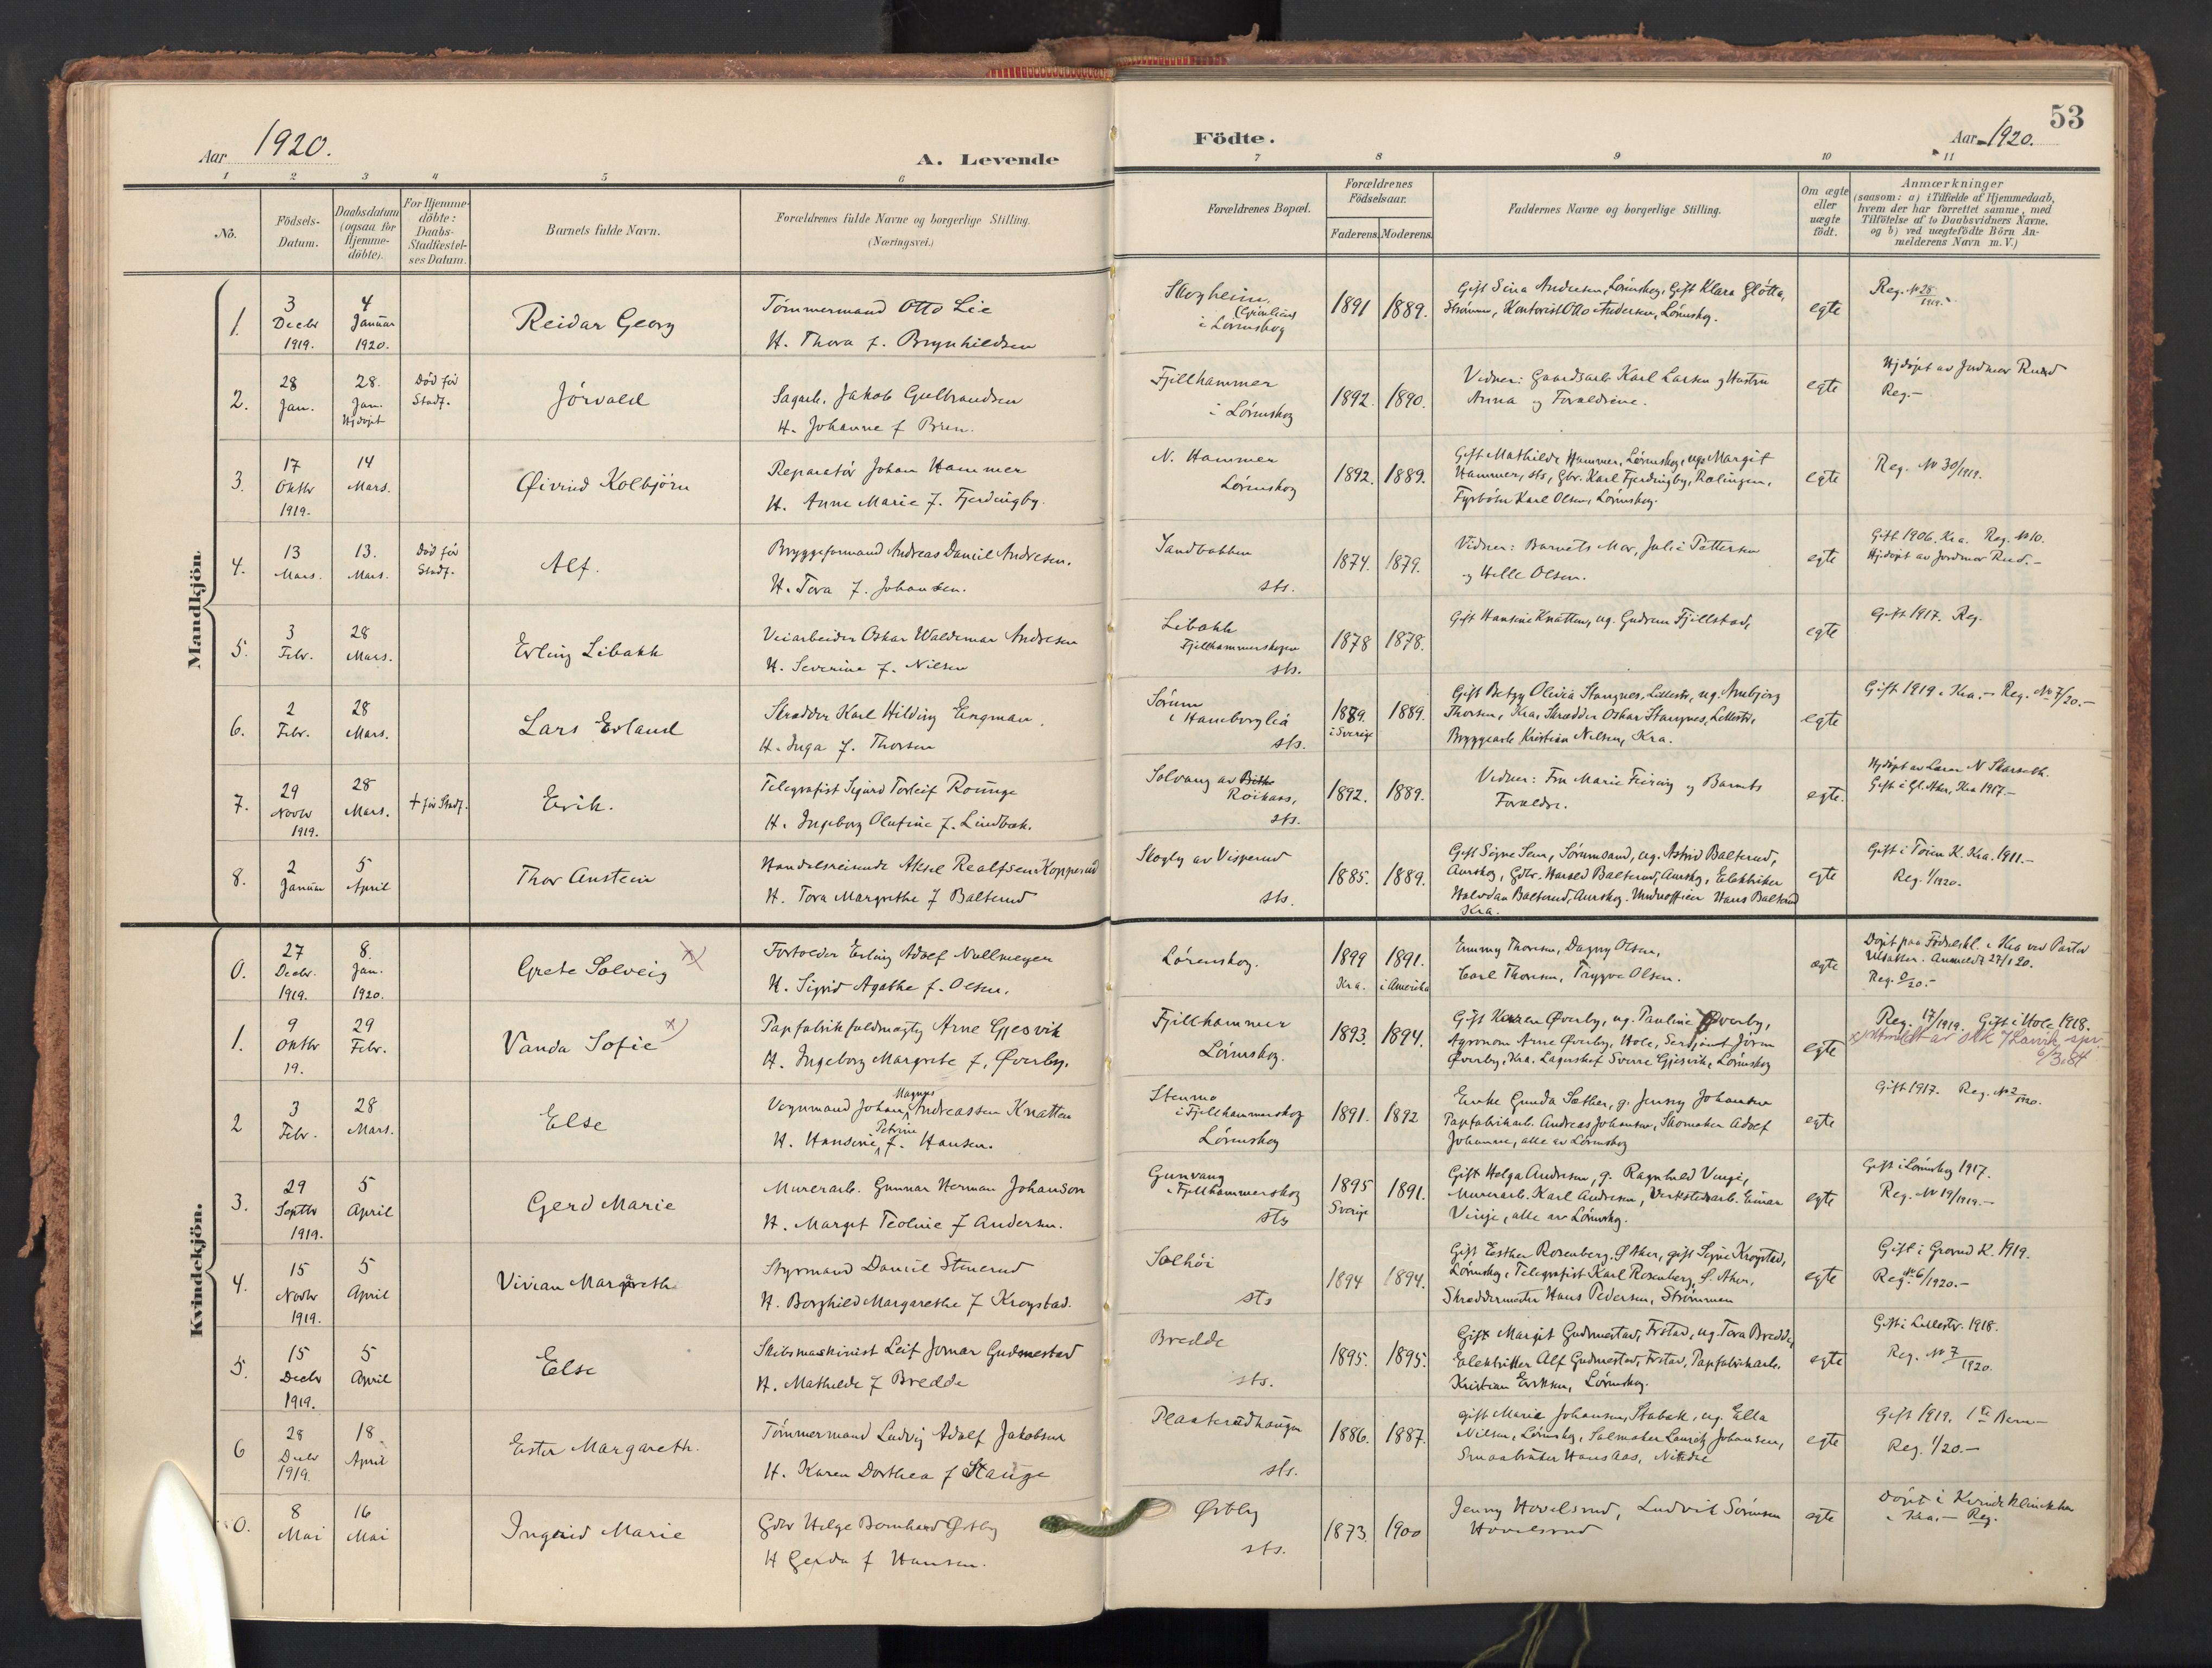 53
Aar 1920.
A. Levende
Födte.
Aar 1920.
1 2 3 4 5 6 7 8 9 10 11
No.
Födsels-
Datum.
Daabsdatum
(ogsaa for
Hjemme-
döbte).
For Hjemme-
döbte:
Daabs-
Stadfæstel-
ses Datum.
Barnets fulde Navn.
Forældrenes fulde Navne og borgerlige Stilling.
(Næringsvei.)
Forældrenes Bopæl.
Forældrenes
Födselsaar.
Faderens. Moderens.
Faddernes Navne og borgerlige Stilling.
Om ægte
eller
uægte
födt.
Anmærkninger
(saasom: a) i Tilfælde af Hjemmedaab,
hvem der har forrettet samme, med
Tilföielse af to Daabsvidners Navne,
og b) ved uægtefödte Börn An-
melderens Navn m. V.)
Mandkjön.
1.
3
Decbr
1919.
4
Januar
1920.
Reidar Georg
Tømmermand Otto Lie
H. Thora f. Brynhildsen
Skogheim
i Lørenskog
1891 1889.
Gift Sina Andersen, Lørenskog, Gift Klara Gløtta,
Strømmen, Kontorist Otto Andersen, Lørenskog.
egte
Reg. № 28/1919.
2.
28
Jan.
28.
Jan.
Hjdöpt
Död før
Stadf.
Jørvald
Sagarb. Jakob Gulbrandsen
H. Johanne f Bren.
Fjellhammer
i Lørenskog
1892. 1890.
Vidner: Gaardsarb Karl Larsen og Hustru
Anna og Forældrene.
egte
Hjdöpt av Jordmor Ruud
Reg.-
3.
17
Oktbr
1919.
14
Mars.
Øivind Kolbjörn
Reparatör Johan Hammer
H. Anne Marie f. Fjerdingby.
N. Hammer
Lørenskog
1892. 1889.
Gift Mathilde Hammer, Lørenskog, ug. Margit
Hammer, sts, Gbr. Karl Fjerdingby, Rælingen,
Fyrböter Karl Olsen, Lørenskog.
egte
Reg. № 30/1919.
4.
13
Mars.
13.
Mars.
Död før
Stadf.
Alf.
Bryggeformand Andreas Daniel Andresen.
H. Tora f. Johansen.
Sandbakken
sts.
1874. 1879.
Vidner: Barnets Mor, Julie Pettersen
og Helle Olsen.
egte
Gift 1906. Kra. Reg. № 10.
Hjdöpt av Jordmor Rud.-
5.
3
Febr.
28
Mars.
Erling Libakk
Veiarbeider Oskar Waldemar Andresen
H. Severine f. Nilsen
Libakk
Fjellhammerskogen
sts.
1878 1878.
Gift Hansine Knatten, ug. Gudrun Fjellstad,
egte
Gift 1917. Reg.
6.
2
Febr.
28
Mars.
Lars Erland
Skrædder Karl Hilding Engman.
H. Inga f. Thorsen
Sørum
i Haneborglia
sts.
1889. 1889.
i Sverige
Gift Betzy Olivia Stangnes, Lillestr., ug. Anbjørg
Thorsen, Kra, Skrædder Oskar Stangnes, Lillestr.,
Bryggearb Kristian Nilsen, Kra.
egte
Gift 1919 i Kra.- Reg. № 7/20.-
7.
29
Novbr
1919.
28
Mars.
+ før Stadf.
Erik.
Telegrafist Sigurd Torleif Rounge
H. Ingeborg Olufine f. Lindbæk.
Solvang av
Röikaas,
sts.
1892. 1889.
Vidner: Fru Marie Feiring og Barnets
Foreldre.
egte.
Hjdöpt av Lærer N Skarseth.
Gift i Gl. Aker, Kra 1917.-
8.
2
Januar
5
April
Thor Anstein
Handelsreisende Aksel Realfsen Kopperud
H. Tora Margrethe f Balterud
Skogly av Visperud
sts.
1885. 1889.
Gift Signe Sem, Sørumsand, ug. Astrid Balterud,
Aurskog, Gdbr. Harald Balterud, Aurskog, Elektriker
Halvdan Balterud, Aurskog. Underofficer Hans Balterud
Kra.
egte
Gift i Töien K. Kra. 1911.-
Reg. 1/1920.
Kvindekjön.
0.
27
Decbr.
1919.
8.
Jan.
1920.
Grete Solveig x)
Fortolder Erling Adolf Nullmeyer
H. Sigrid Agathe f. Olsen.
Lørenskog.
1899 1891.
Kra. i Amerika
Emmy Thoresen, Dagny Olsen,
Carl Thoresen, Trygve Olsen.
ægte
Döpt paa Födselskl. i Kra ved Pastor
Ulsaker. Anmeldt 27/1 20.
Reg. 0/20.-
1.
9
Oktbr
19.
29
Febr.
Vanda Sofie x)
Papfabrikfuldmægtig Arne Gjesvik
H. Ingeborg Margrete f. Øverby.
Fjellhammer
Lørenskog.
1893. 1894.
Gift Karen Øverby, ug. Pauline Øverby,
Agronom Arne Øverby, Hole, Serdjant Jörgen
Øverby, Kra. Lagerchef Sverre Gjesvik, Lørenskog
egte
Reg. 17/1919. Gift i Hole 1918.
2
3
Febr.
28
Mars.
Else
Vognmand Johan Magnus Andreassen Knatten
H. Hansine Petrine f. Hansen.
Stenmo
i Fjellhammerskog
Lørenskog
1891. 1892
Enke Gunda Sæther, g. Jenny Johansen
Papfabrikarb. Andreas Johansen, Skomaker Adolf
Johansen, alle av Lørenskog
egte
Gift 1917. Reg. № 2/1920.
3.
29
Septbr
1919.
5
April
Gerd Marie
Murerarb. Gunnar Herman Johanson
H. Margit Teoline f Andersen.
Gunvang
i Fjellhammerskog
sts
1895 1891.
Sverige
Gift Helga Andresen, g. Ragnhild Vinje,
Murerarb. Karl Andresen, Verkstedsarb. Einar
Vinje, alle av Lørenskog.
egte
Gift i Lørenskog 1917.
Reg. № 19/1919.-
4.
15
Novbr
1919.
5
April
Vivian Margareth
Styrmand Daniel Stenerud
H. Borghild Margarethe f Krogstad.
Solhöi
sts
1894 1894.
Gift Esther Rosenberg, Ø. Aker, gift Signe Krogstad,
Lørenskog, Telegrafist Karl Rosenberg, Ø. Aker,
Skreddermester Hans Pedersen, Strømmen
egte
Gift i Grorud K. 1919.
Reg. № 6/1920.-
5.
15
Decbr
1919.
5
April
Else
Skibsmaskinist Leif Jomar Gudmestad
H. Mathilde f Bredde
Bredde
sts.
1895. 1895.
Gift Margit Gudmestad, Frstad, ug. Tora Bredde,
Elektriker Alf Gudmestad, Frstad, Papfabrikarb.
Kristian Eriksen, Lørenskog.
egte
Gift i Lillestr. 1918.
Reg. № 7/1920.
6
28
Decbr
1919.
18.
April
Ester Margareth.
Tømmermand Ludvig Adolf Jakobsen
H. Karen Dorthea f Stange
Plaaterudhaugen
sts.
1886. 1887.
Gift Marie Johansen, Stabæk, ug. Ella
Nilsen, Lørenskog, Salmaker Lauritz Johansen,
Smaabruker Hans Aas, Nitedal
egte
Gift 1919. 1ste Barn-
Reg. 1/20.-
0.
8
Mai
16
Mai
Ingrid Marie
Gdbr Helge Bernhard Østby
H Gerda f Hansen.
Østby
sts.
1873. 1900
Jenny Hovelsrud, Ludvik Sørensen
Hovelsrud
egte
Döpt i Kvindeklinikken
i Kra.- Reg.